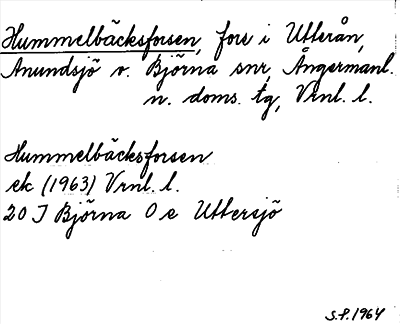 Hummelbäcksforsen, fors i Utterån,
Anundsjö o. Björna snr, Ångermanl.
n. doms. tg, Vrnl. l.
Hummelbäcksforsen
ek (1963) Vrnl. l.
20 J Björna O e Uttersjö
S.P. 1964